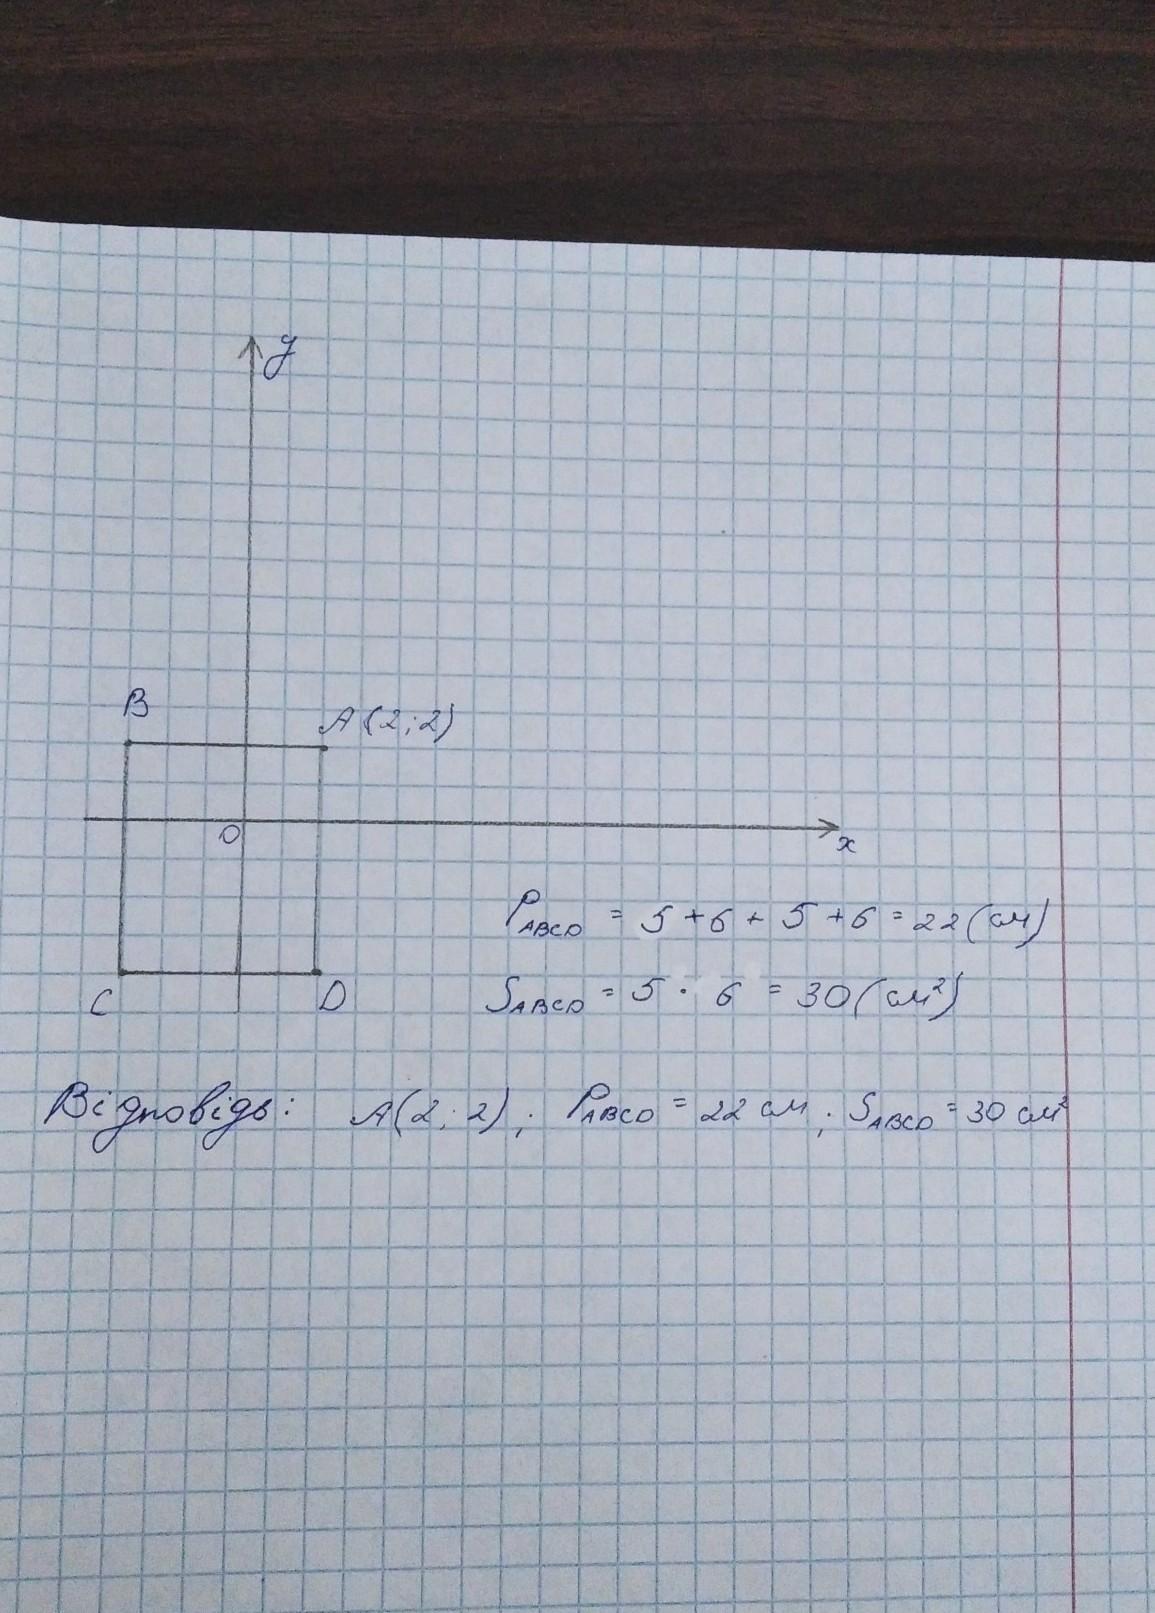 y
B
A(2;2)
O
x
P_ABCD = 5+6+5+6=22(см)
C
D
S_ABCD = 5 · 6 = 30(см²)
Відповідь: A(2;2); P_ABCD = 22 см; S_ABCD = 30 см²